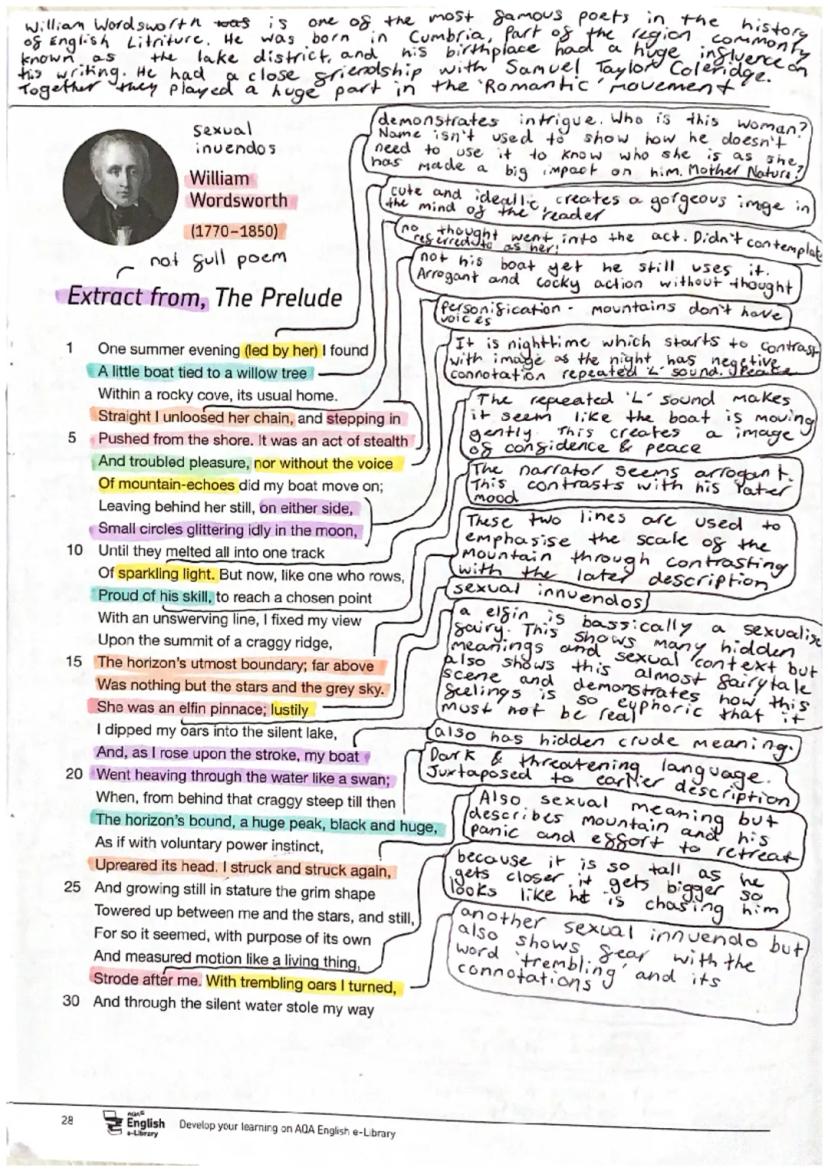 William Wordsworth was is one of the most famous poets in the history
of English Litriture. He was born in Cumbria, part of the region commonly
known as the lake district, and his birthplace had a huge influence on
his writing. He had a close friendship with Samuel Taylor Coleridge.
Together they played a huge part in the 'Romantic' movement
sexual
inuendos
William
Wordsworth
(1770–1850)
not full poem
Extract from, The Prelude
demonstrates intrigue. Who is this woman?
Name isn't used to show how he doesn't
need to use it to know who she is as she
has made a big impact on him. Mother Nature?
cute and ideallic, creates a gorgeous imge in
the mind of the reader
no thought went into the act. Didn't contemplate
referred to as her!
not his boat yet he still uses it.
Arrogant and cocky action without thought
personification - mountains don't have
voices
It is nighttime which starts to contrast
with image as the night has negetive
connotation repeated 'L' sound. Peace
The repeated 'L' sound makes
it seem like the boat is moving
gently. This creates a image
of confidence & peace
The narrator seems arrogant.
This contrasts with his later
mood
These two lines are used to
emphasise the scale of the
mountain through contrasting
with the later description
sexual innuendos
a elfin is bassically a sexualise
fairy. This shows many hidden
meanings and sexual context but
also shows this almost fairytale
scene and demonstrates how this
feelings is so euphoric that it
must not be real
also has hidden crude meaning.
Dark & threatening language.
Juxtaposed to earlier description
Also sexual meaning but
describes mountain and his
panic and effort to retreat
because it is so tall as he
gets closer it gets bigger so
looks like ht is chasing him
another sexual innuendo but
also shows fear with the
word 'trembling' and its
connotations
1 One summer evening (led by her) I found
A little boat tied to a willow tree
Within a rocky cove, its usual home.
Straight I unloosed her chain, and stepping in
5 Pushed from the shore. It was an act of stealth
And troubled pleasure, nor without the voice
Of mountain-echoes did my boat move on;
Leaving behind her still, on either side,
Small circles glittering idly in the moon,
10 Until they melted all into one track
Of sparkling light. But now, like one who rows,
Proud of his skill, to reach a chosen point
With an unswerving line, I fixed my view
Upon the summit of a craggy ridge,
15 The horizon's utmost boundary; far above
Was nothing but the stars and the grey sky.
She was an elfin pinnace; lustily
I dipped my oars into the silent lake,
And, as I rose upon the stroke, my boat
20 Went heaving through the water like a swan;
When, from behind that craggy steep till then
The horizon's bound, a huge peak, black and huge,
As if with voluntary power instinct,
Upreared its head. I struck and struck again,
25 And growing still in stature the grim shape
Towered up between me and the stars, and still,
For so it seemed, with purpose of its own
And measured motion like a living thing,
Strode after me. With trembling oars I turned,
30 And through the silent water stole my way
28
AQA
English
e-Library
Develop your learning on AQA English e-Library